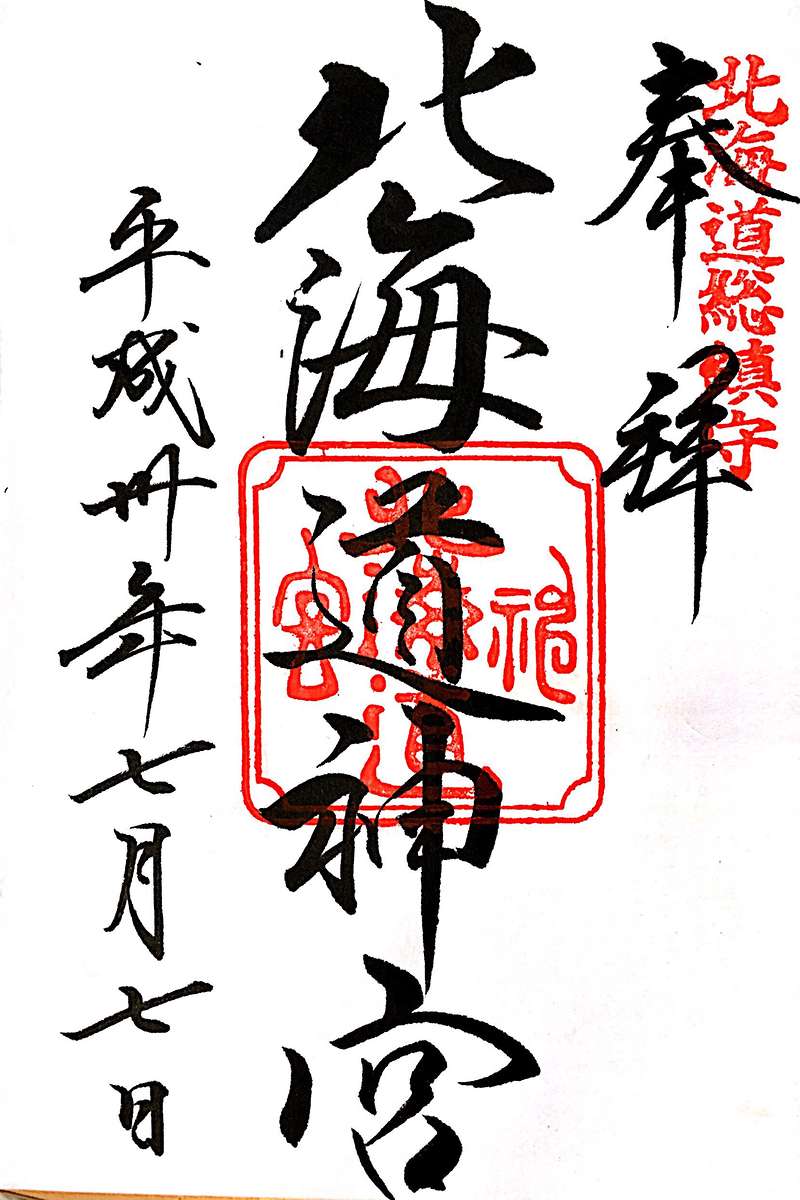 北海道総鎮守
奉拝
北海道神宮
平成卅年七月七日